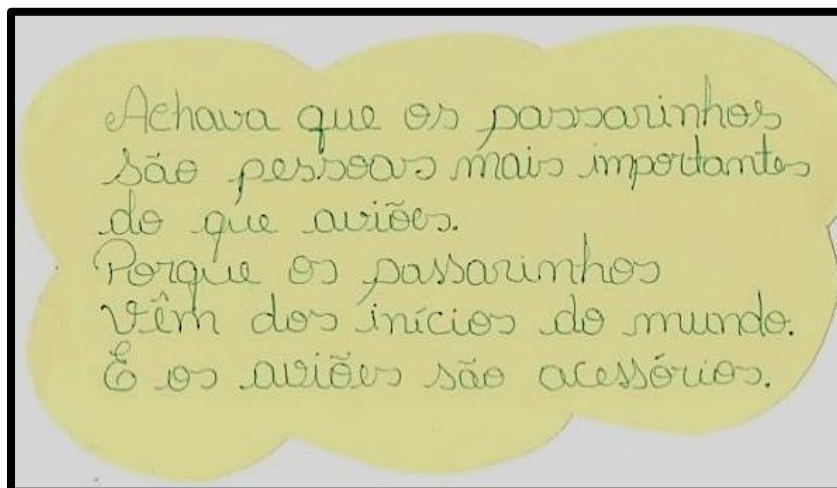 Achava que os passarinhos
são pessoas mais importantes
do que aviões.
Porque os passarinhos
Vêm dos inícios do mundo.
E os aviões são acessórios.